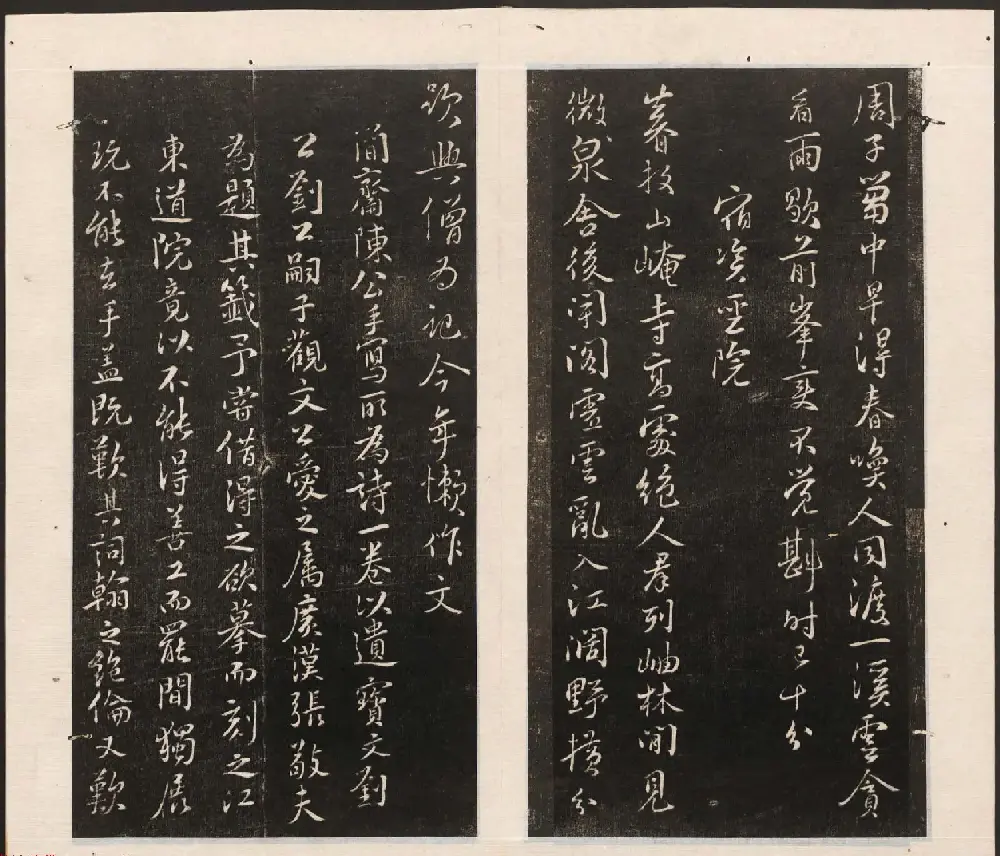 周子中早得春喚人同渡一溪雲貪
看雨歇前峯變不覺斟時已十分
宿資聖院
暮投山崦寺高處絶人羣列岫林間見
微泉舍後聞閣虛雲亂入江闊野橫分
欲與僧為記今年懶作文
簡齋陳公手寫所為詩一卷以遺寶文劉
公劉公嗣子觀文公愛之屬廣漢張敬夫
為題其籤予嘗借得之欲摹而刻之江
東道院竟以不能得善工而罷間獨展
玩不能去手蓋既歎其詞翰之絶倫又歎